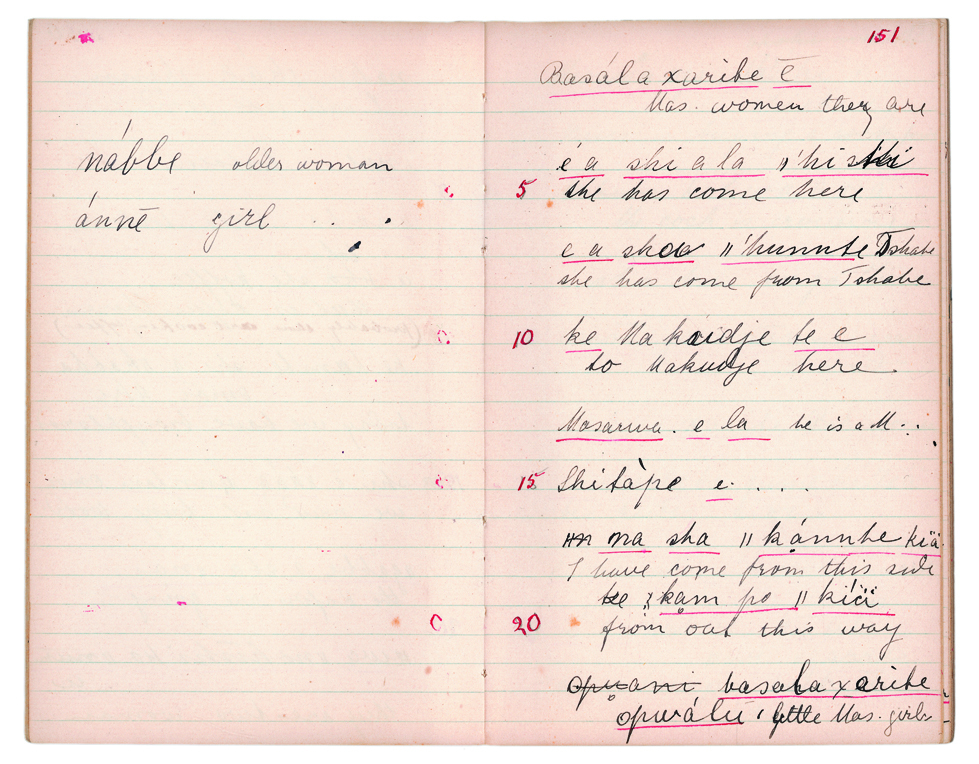 nábbe older woman
ánnē girl . . .
151
Basála xaribe ē
Mas. women they are
é a shi a la ǁ'hi
5 she has come here
e a ǁ'hunnte Tshabe
she has come from Tshabe
10 ke Makaidje te e
to Makudje here
Masarwa. e la he is a M..
15 Shitàpe e. . . .
na sha ǁkánnbe kïä
I have come from this side
kam po ǁkïä
20 from out this way
basala xaribe
opwálu little Mas. girls